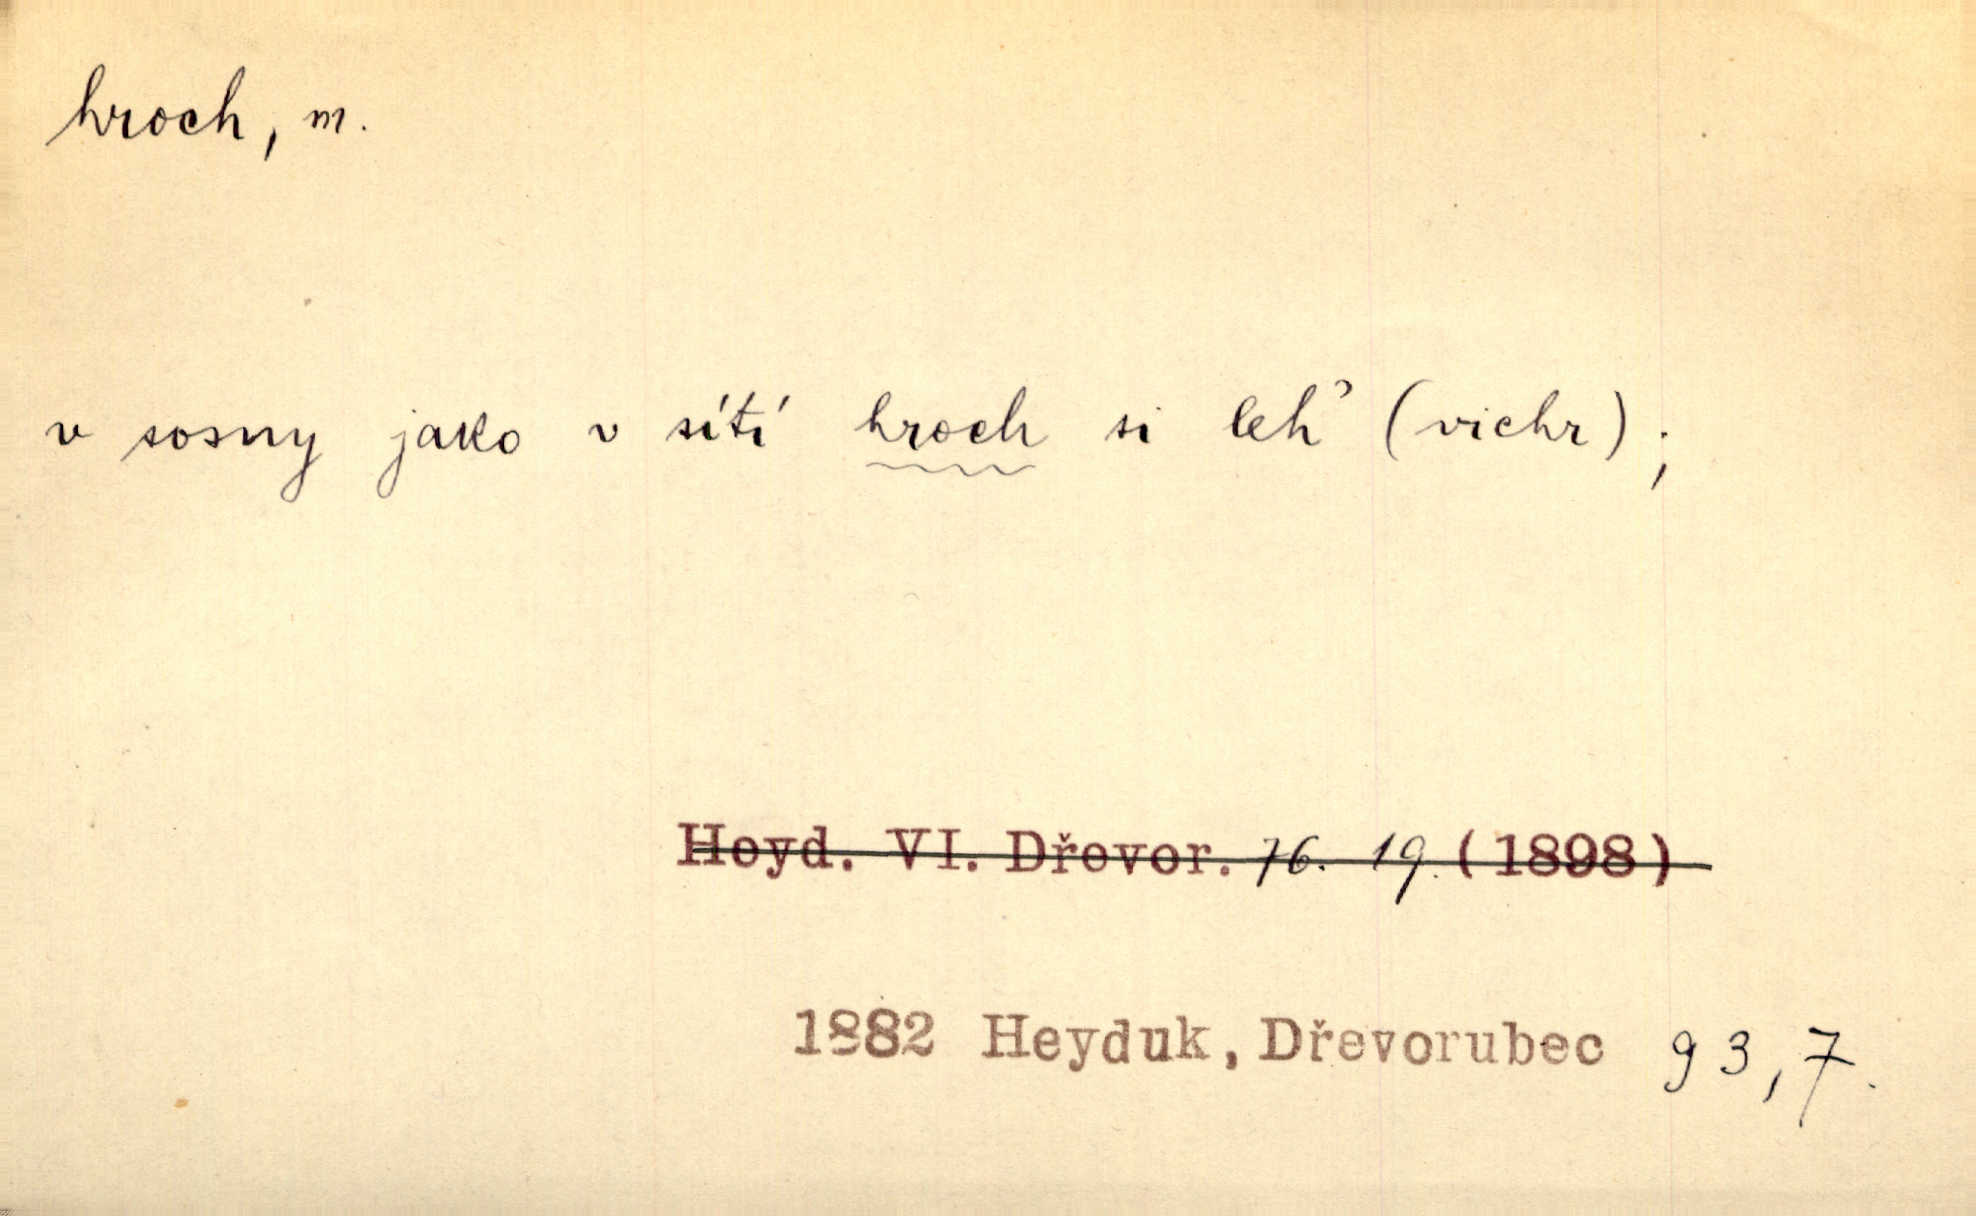 hroch, m.
v sosny jako v sítí hroch si leh' (vichr);
Heyd. VI. Dřevor. 76. 19. (1898)
1882 Heyduk, Dřevorubec 93,7.